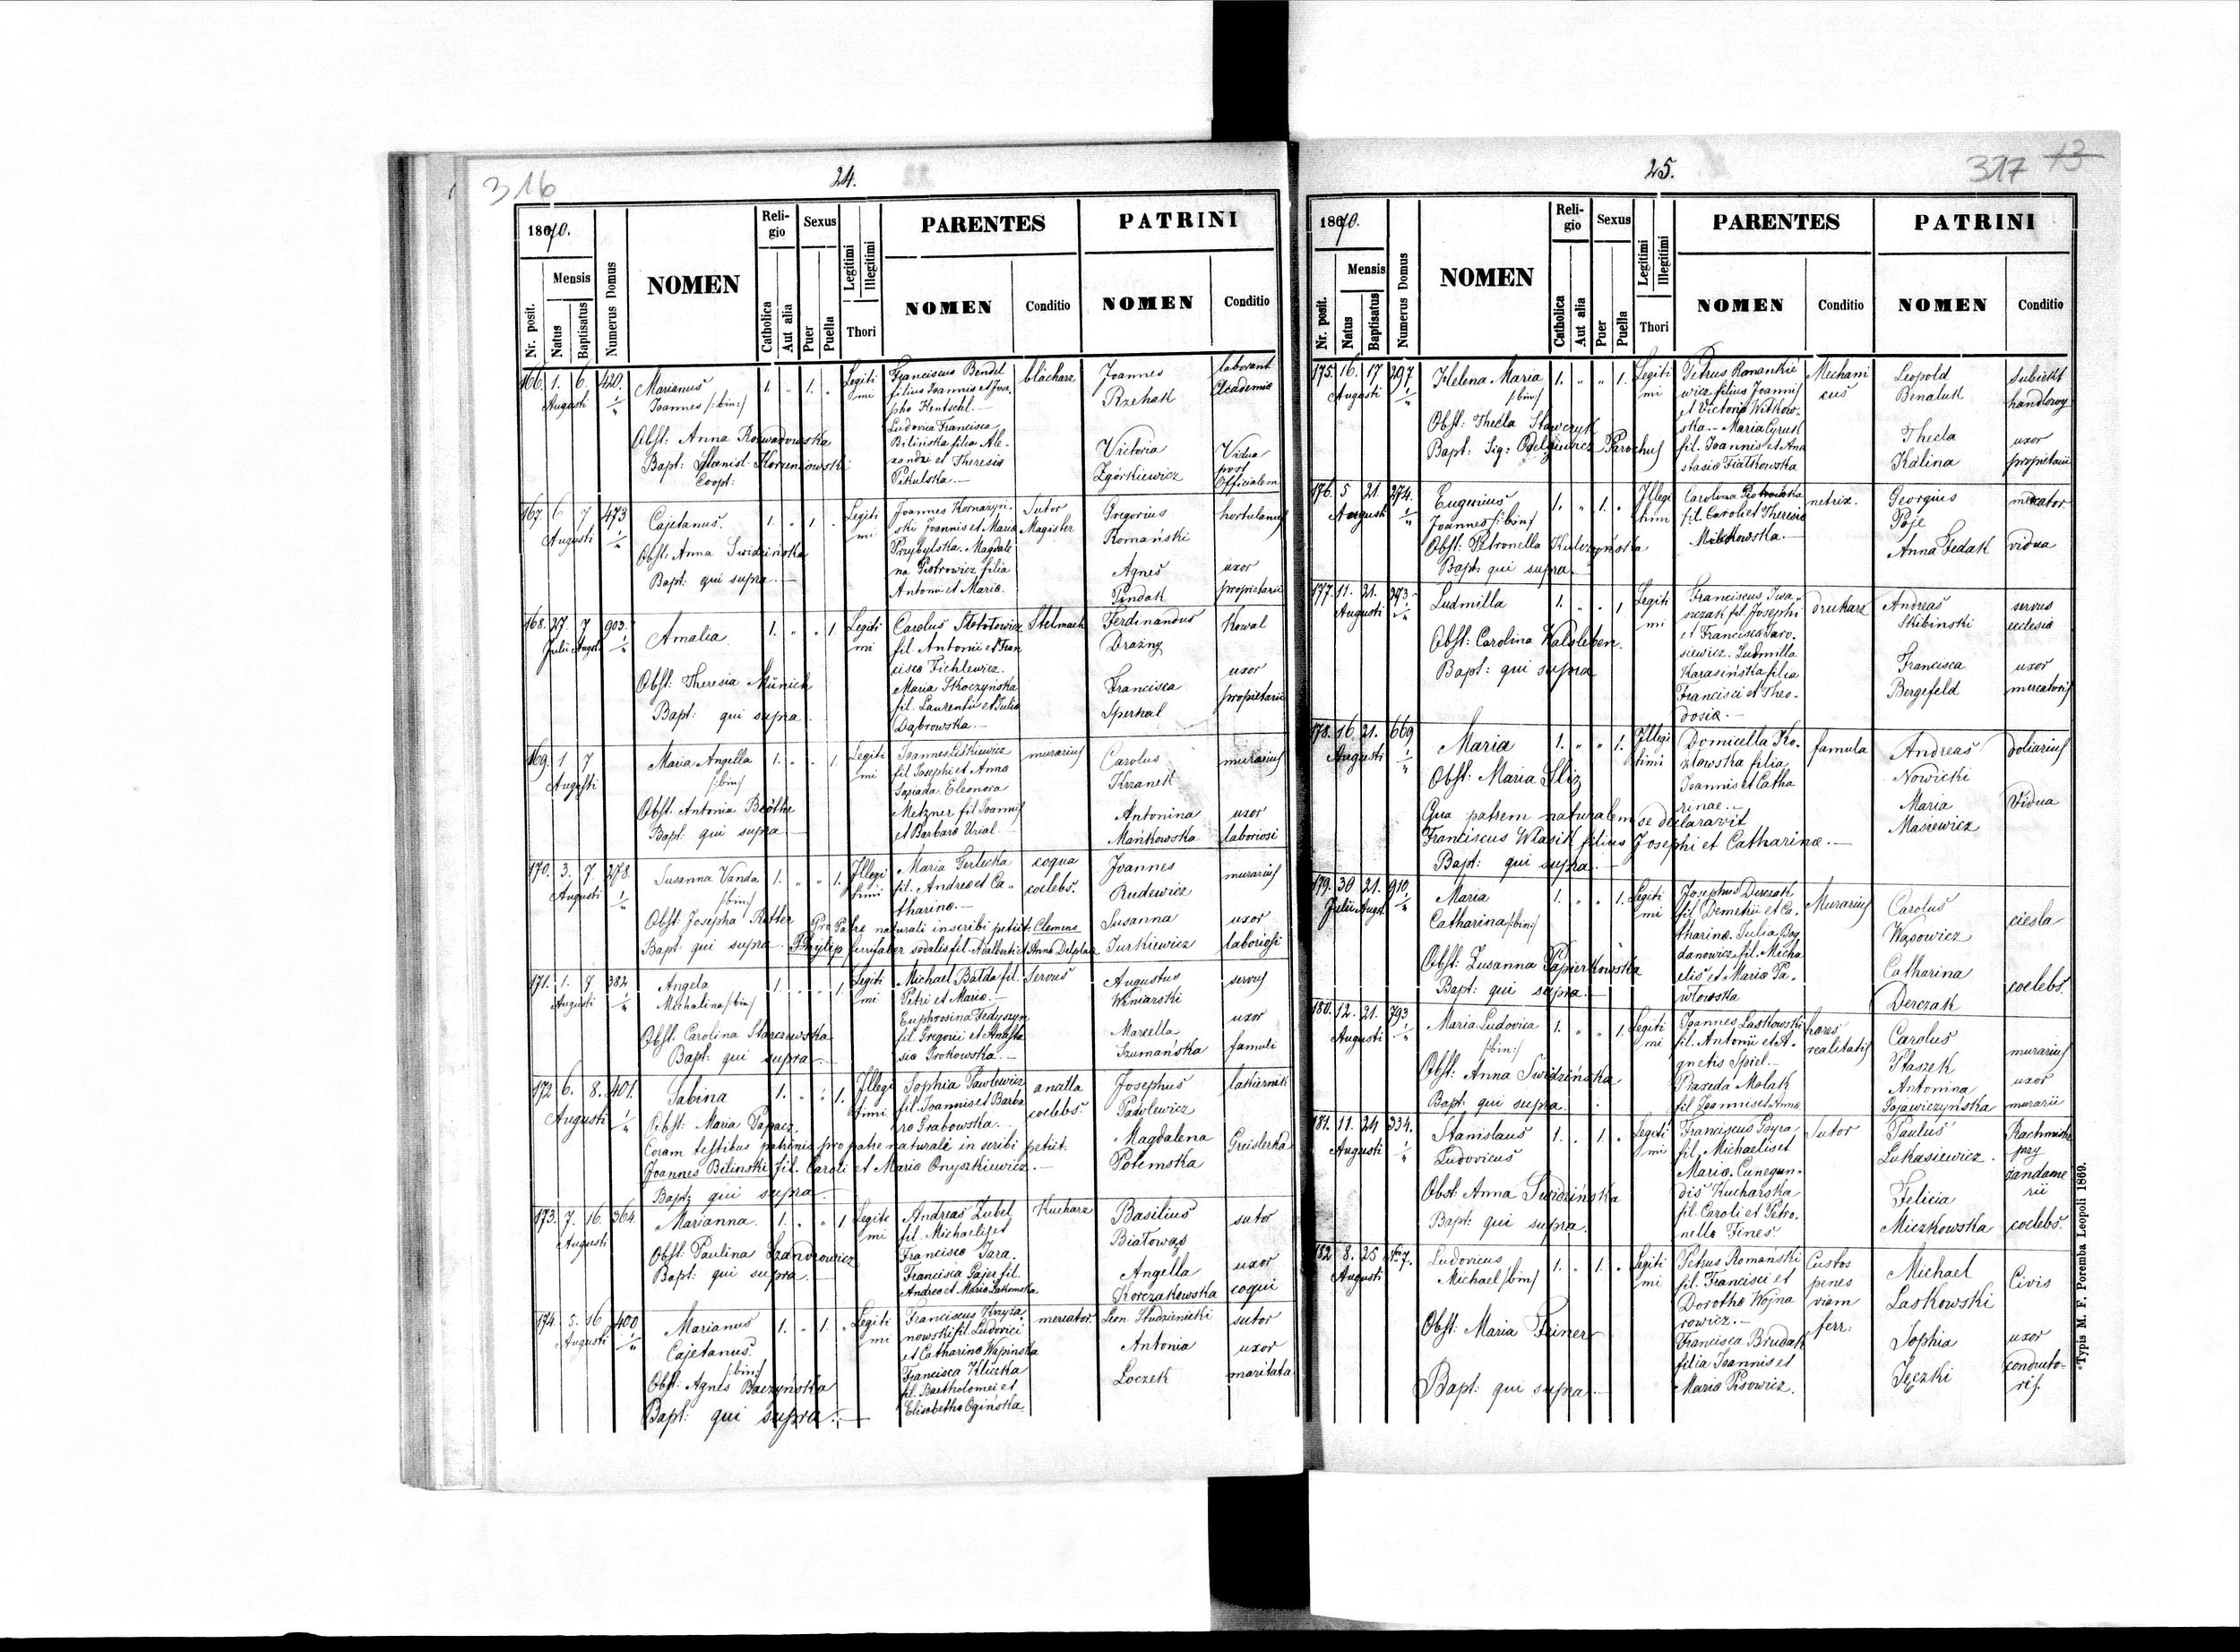 316
24.
1870.
Nr. posit.
Mensis
Natus
Baptisatus
Numerus Domus
NOMEN
Religio
Catholica
Aut alia
Sexus
Puer
Puella
Legitimi
Illegitimi
Thori
PARENTES
NOMEN
Conditio
PATRINI
NOMEN
Conditio
166. 1. 6. 420.
Augusti
Marianus
Joannes /:bin:/
Obst: Anna Rozwadowska
Bapt: Stanisl. Korzeniowski
Coopt:
1. " 1. "
Legiti
mi
Franciscus Bendel
filius Joannis et Jose
pha Hentschl.
Ludovica Francisca
Bilińska filia Ale-
xandri et Theresia
Pikulska.
blacharz
Joannes
Rzehak
Victoria
Zgórkiewicz
laborant
Academiæ
Vidua
post
Officialem
167. 6 7 473
Augusti
Cajetanus.
Obst: Anna Swidzińska
Bapt: qui supra.
1. " 1. "
Legiti
mi
Joannes Kornaszyń-
ski Joannis et Maria
Przybylska. Magdale
na Piotrowicz filia
Antonii et Maria.
Sutor
Magister
Gregorius
Romański
Agnes
Pindak
hortulanus
uxor
propietarii
168. 27. 7 903.
Julii August.
Amalia.
Obst: Theresia Münich
Bapt: qui supra.
1. " " 1.
Legiti
mi
Carolus Stołotowicz
fil. Antonii et Fran
cisca Fichlewicz.
Maria Skoczyńska
fil. Laurentii et Julia
Dąbrowska.
Stelmach
Ferdinandus
Drażny
Francisca
Sperkal
Kowal
uxor
propietarii
169. 1 7
Augusti
Maria Angella
/:bin:/
Obst. Antonia Böthe
Bapt. qui supra
1. " " 1.
Legiti
mi
Joannes Leśkiewicz
fil. Josephi et Anna
Sasiada. Eleonora
Metzner fil. Joannis
et Barbara Urial
murarius
Carolus
Krzanek
Antonina
Mańkowska
murarius
uxor
laboriosi
170. 3. 7. 278.
Augusti
Susanna Vanda
/:bin:/
Obst. Josepha Ritter
Bapt: qui supra.
1. " " 1.
Illegi
timi
Maria Terlecka
fil. Andrea et Ca-
tharina.
Pro Patre naturali inscribi petiit: Clemens
Prytyp ferrifaber sodalis fil. Adalberti et Anna Delplace
coqua
coelebs.
Joannes
Rudewicz
Susanna
Jurkiewicz
murarius
uxor
laboriosi
171. 1. 7 382
Augusti
Angela
Michalina /:bin:/
Obst. Carolina Starczewska
Bapt: qui supra.
1. " " 1.
Legiti
mi
Michael Balda fil.
Petri et Maria.
Euphrosina Fedyszyn
fil. Gregorii et Anasta
sia Grokowska.
Servus
Augustus
Winiarski
Marcella
Szumańska
servus
uxor
famuli
172 6. 8. 401.
Augusti
Sabina
Obst: Maria Papacz
1. " " 1.
Illegi
timi
Sophia Pawlewicz
fil. Joannis et Barba
ra Grabowska.
ancilla
coelebs.
Coram testibus patrinis pro patre naturali inscribi petiit.
Joannes Bilinski fil. Caroli et Maria Onyszkiewicz.
Bapt: qui supra.
Josephus
Pawlewicz
Magdalena
Potemska
lakiernik
Greislerka
173. 7. 16. 364.
Augusti
Marianna.
Obst: Paulina Szandrowicz
Bapt: qui supra.
1. " " 1.
Legiti
mi
Andreas Zubel
fil. Michaelis et
Francisca Jara.
Francisca Gajer fil.
Andrea et Maria Lakomska
Kucharz
Basilius
Białowąs
Angella
Korczakowska
sutor
uxor
coqui
174. 5. 16 400
Augusti
Marianus
Cajetanus.
/:bin:/
Obst: Agnes Baczyńska
Bapt: qui supra.
1. " 1. "
Legiti
mi
Franciscus Krzyża-
nowski fil. Ludovici
et Catharina Wapinska
Francisca Kliczka
fil. Bartholomei et
Elisabetha Ogińska.
mercator.
Leon Studzieniecki
Antonia
Loczek
sutor
uxor
maritata
25.
317 13
1870.
Nr. posit.
Mensis
Natus
Baptisatus
Numerus Domus
NOMEN
Religio
Catholica
Aut alia
Sexus
Puer
Puella
Legitimi
Illegitimi
Thori
PARENTES
NOMEN
Conditio
PATRINI
NOMEN
Conditio
175. 16. 17 297.
Augusti
Helena Maria
/:bin:/
Obst: Thecla Stawczyk
Bapt: Sig: Odelgiewicz Parochus
1. " " 1.
Legiti
mi
Petrus Romankie
wicz filius Joannis
et Victoria Witkow-
ska. Maria Cyruk
fil. Joannis et Ana
stasia Fiałkowska
Mechani
cus
Leopold
Benaluk
Thecla
Kalina
Subiekt
handlowy
uxor
propietarii
176. 5 21. 274.
Augusti
Eugenius
Joannes /:bin:/
Obst: Petronella Kulczyńska
Bapt: qui supra.
1. " 1. "
Illegi
timi
Carolina Piotrowska
fil. Caroli et Theresia
Mitkowska.
netrix.
Georgius
Paje
Anna Fedak
mercator
vidua
177. 11. 21. 273.
Augusti
Ludmilla
Obst: Carolina Waldleben.
Bapt: qui supra
1. " " 1
Legiti
mi
Franciscus Iwa-
szczak fil. Josephi
et Francisca Jaro-
siewicz. Ludmilla
Karasińska filia
Francisci et Theo-
dosia.
drukarz
Andreas
Skibinski
Francisca
Bergefeld
servus
ecclesiæ
uxor
mercatoris
178. 16. 21. 669
Augusti
Maria
Obst: Maria Sliz
1. " " 1.
Illegi
timi
Domicella Ko-
złowska filia
Joannis et Catha
rinae.
famula
Qua patrem naturalem se declaravit
Franciscus Własik filius Josephi et Catharinæ.
Bapt: qui supra.
Andreas
Nowicki
Maria
Masiewicz
doliarius
Vidua
179. 30 21. 910.
Julii August.
Maria
Catharina /:bin:/
Obst: Zusanna Papierkowska
Bapt: qui supra.
1. " " 1.
Legiti
mi
Josephus Derczak
fil. Demetrii et Ca-
tharina. Julia Bog
danowicz fil. Micha
elis et Maria Pa-
włowska
Murarius
Carolus
Wąsowicz
Catharina
Derczak
ciesla
coelebs.
180. 12. 21. 793.
Augusti
Maria Ludovica
/:bin:/
Obst: Anna Swidzińska
Bapt: qui supra.
1. " " 1.
Legiti
mi
Joannes Laskowski
fil. Antonii et A-
gnetis Spiel.
Praxeda Molak
fil Joannis et Anna
hæres
realitatis
Carolus
Ptaszek
Antonina
Gajewiczyńska
murarius
uxor
murarii
181. 11. 24 334.
Augusti
Stanislaus
Ludovicus
Obst: Anna Swidzińska
Bapt: qui supra.
1. " 1. "
Legiti
mi
Franciscus Gyra
fil. Michaelis et
Maria. Cunegun-
dis Kucharska
fil. Caroli et Petro-
nella Fines.
Sutor
Paulus
Lukasiewicz.
Felicia
Miczkowska
Rachmistrz
przy
żandarme
rii
coelebs.
182 8. 25
Augusti
Ludovicus
Michael /:bin:/
Obst: Maria Feiner
Bapt: qui supra
1. " 1. "
Legiti
mi
Petrus Romański
fil. Francisci et
Dorotha Wojna
rowicz.
Francisca Brudak
filia Joannis et
Maria Pisowicz.
Custos
penes
viam
ferr:
Michael
Laskowski
Sophia
Jęczki
Civis
uxor
conducto-
ris.
Typis M. F. Poremba Leopoli 1869.